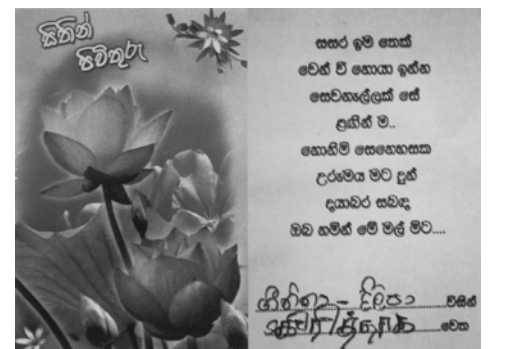 සිතින්
පිවිතුරු
සසර ඉම තෙක්
වෙන් වී නොයා ඉන්න
සෙවනැල්ලක් සේ
ළඟින් ම..
නොනිමි සෙනෙහසක
උරුමය මට දුන්
දයාබර සබඳ
ඔබ නමින් මේ මල් මිට....
ගීත්තා - දිලීපා විසින්
වෙත